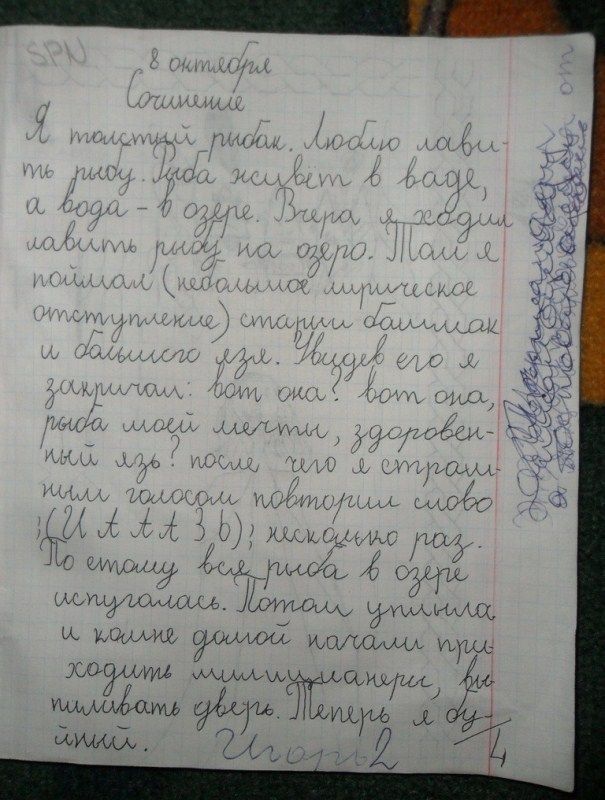 SPN
8 октября
Сочинение
Я толстый рыбак. Люблю лави-
ть рыбу. Рыба живёт в ваде,
а вода - в озере. Вчера я ходил
лавить рыбу на озеро. Там я
поймал (небольшое лирическое
отступление) старии башмак
и большого язя. Увидев его я
закричал: вот она? вот она,
рыба моей мечты, здоровен-
ный язь? после чего я страш-
ным голосом повторил слово
;(И А А А З Ь); несколько раз.
По етому вся рыба в озере
испугалась. Потом уплыла
и комне домой начали при
ходить милицианеры, вы
пиливать дверь. Теперь я бу-
йный.
Игорь 2/4
от